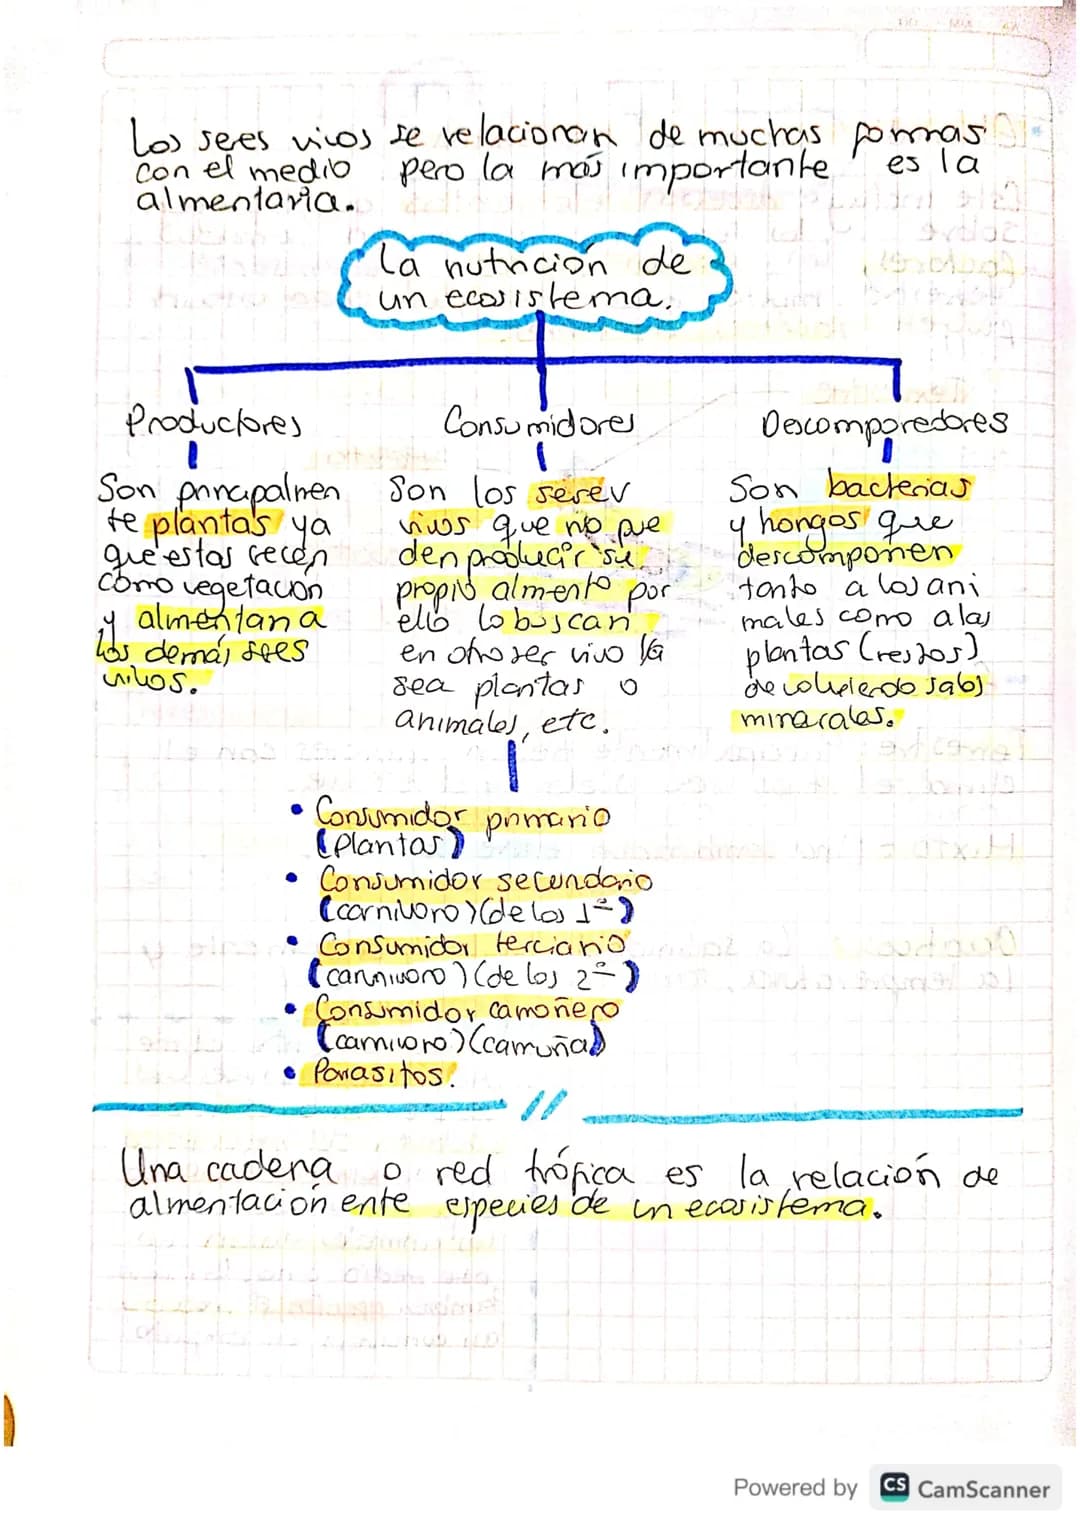 Los sees vivos se relacionan de muchas formas
con el medio pero la más importante es la
almentaria.
La nutrición de
un ecosistema.
Productores
Consumidores
Descomporedores
Son principalmen
te plantas ya
que estas crecen
como vegetación
y almentan a
los demás sees
vivos.
Son los seres
vivos que no pue
den producir su
propio almento por
ello lo buscan
en otro ser vivo ya
sea plantas o
animales, etc.
Son bacterias
y hongos que
descomponen
tanto a los ani
males como a las
plantas (restos)
devolviendo sales
minerales.
• Consumidor primario
(Plantas)
• Consumidor secundario
(carnívoro) (de los 1º)
• Consumidor terciario
(carnívoro) (de los 2º)
• Consumidor carroñero
(carnívoro) (carruña)
• Parasitos.
Una cadena o red trófica es la relación de
almentación ente especies de un ecosistema.
Powered by CS CamScanner